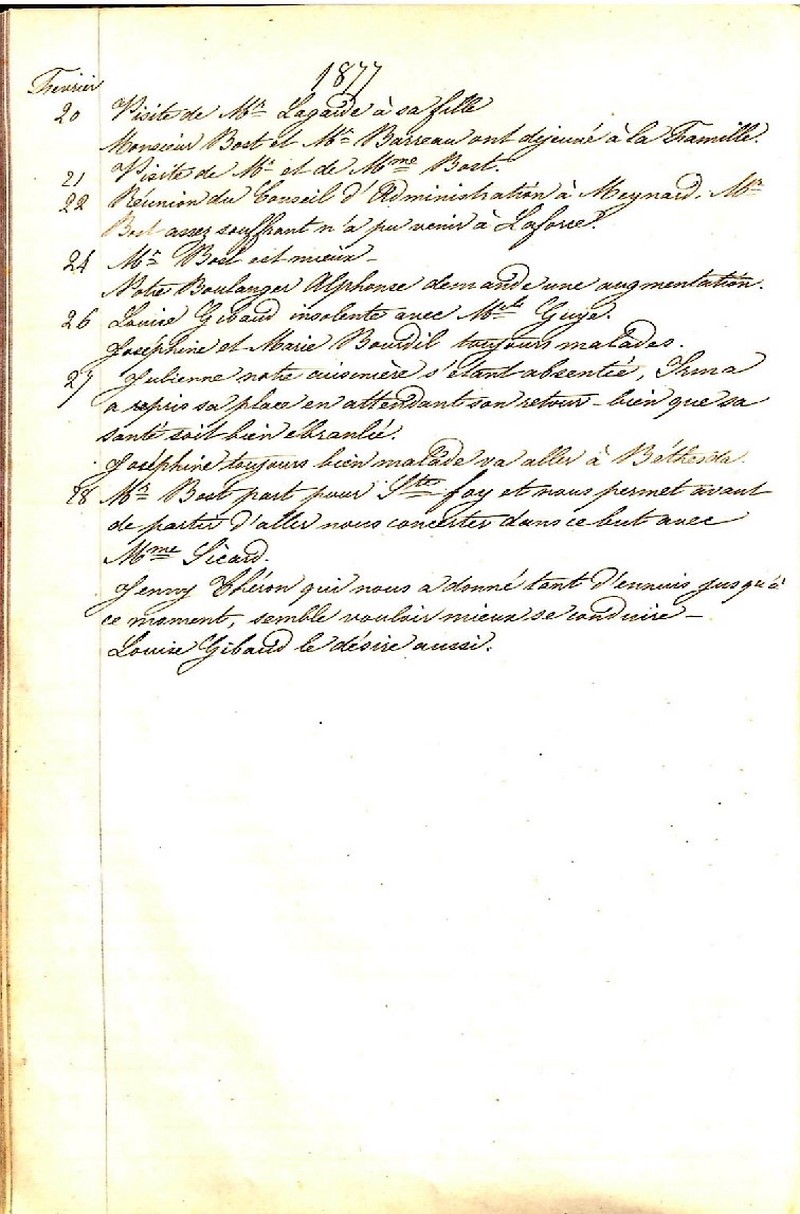 1877
Fevrier
20 Visite de Mr Lagarde à sa fille
Monsieur Bost et Mr Barreau ont dejeuné à la Famille.
21 Visite de Mr et de Mme Bost.
22 Réunion du Conseil d'Administration à Meynard. Mr
Bost assez souffrant n'a pu venir à Laforce.
24 Mr Bost est mieux –
Notre Boulanger Alphonse demande une augmentation.
26 Louise Gibaud insolente avec Mlle Guye.
Joséphine et Marie Bourdil toujours malades.
27 Julienne notre cuisinière s'étant absentée, Irma
a repris sa place en attendant son retour – bien que sa
santé soit bien ébranlée.
Joséphine toujours bien malade va aller à Béthesda.
28 Mr Bost part pour Ste foy et nous permet avant
de partir d'aller nous concerter dans ce but avec
Mme Sicard.
Jenny Théron qui nous a donné tant d'ennuis jusqu'à
ce moment, semble vouloir mieux se conduire –
Louise Gibaud le désire aussi.